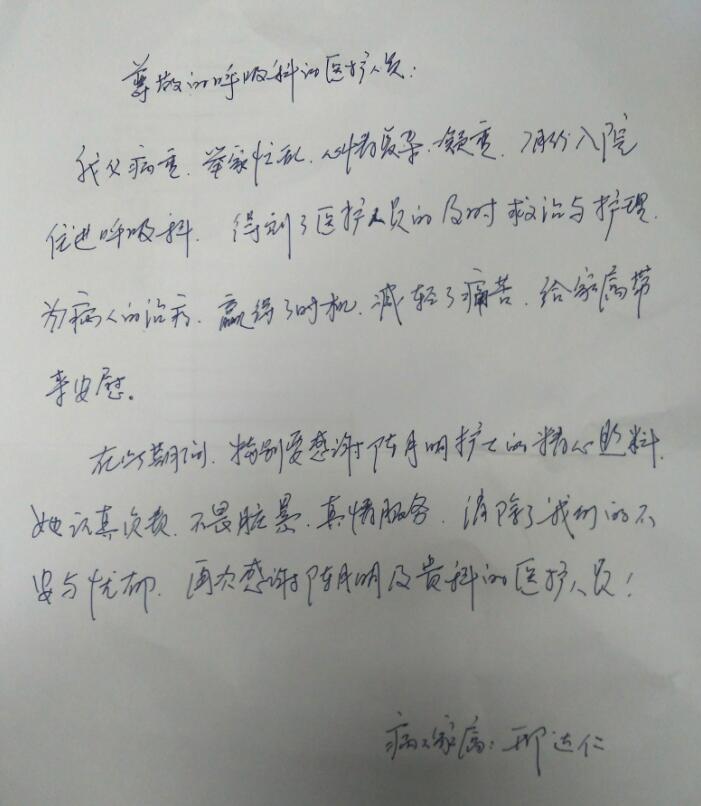 尊敬的呼吸科的医护人员：
我父病重，举家忙乱，心情复杂、凝重，7月份入院
住进呼吸科，得到了医护人员的及时救治与护理，
为病人的治疗，赢得了时机，减轻了痛苦，给家属带
来安慰。
在此期间，特别要感谢陈月明护士的精心照料，
她认真负责，不畏脏累，真情服务，消除了我们的不
安与忧郁，再次感谢陈月明及贵科的医护人员！
病人家属：邢达仁